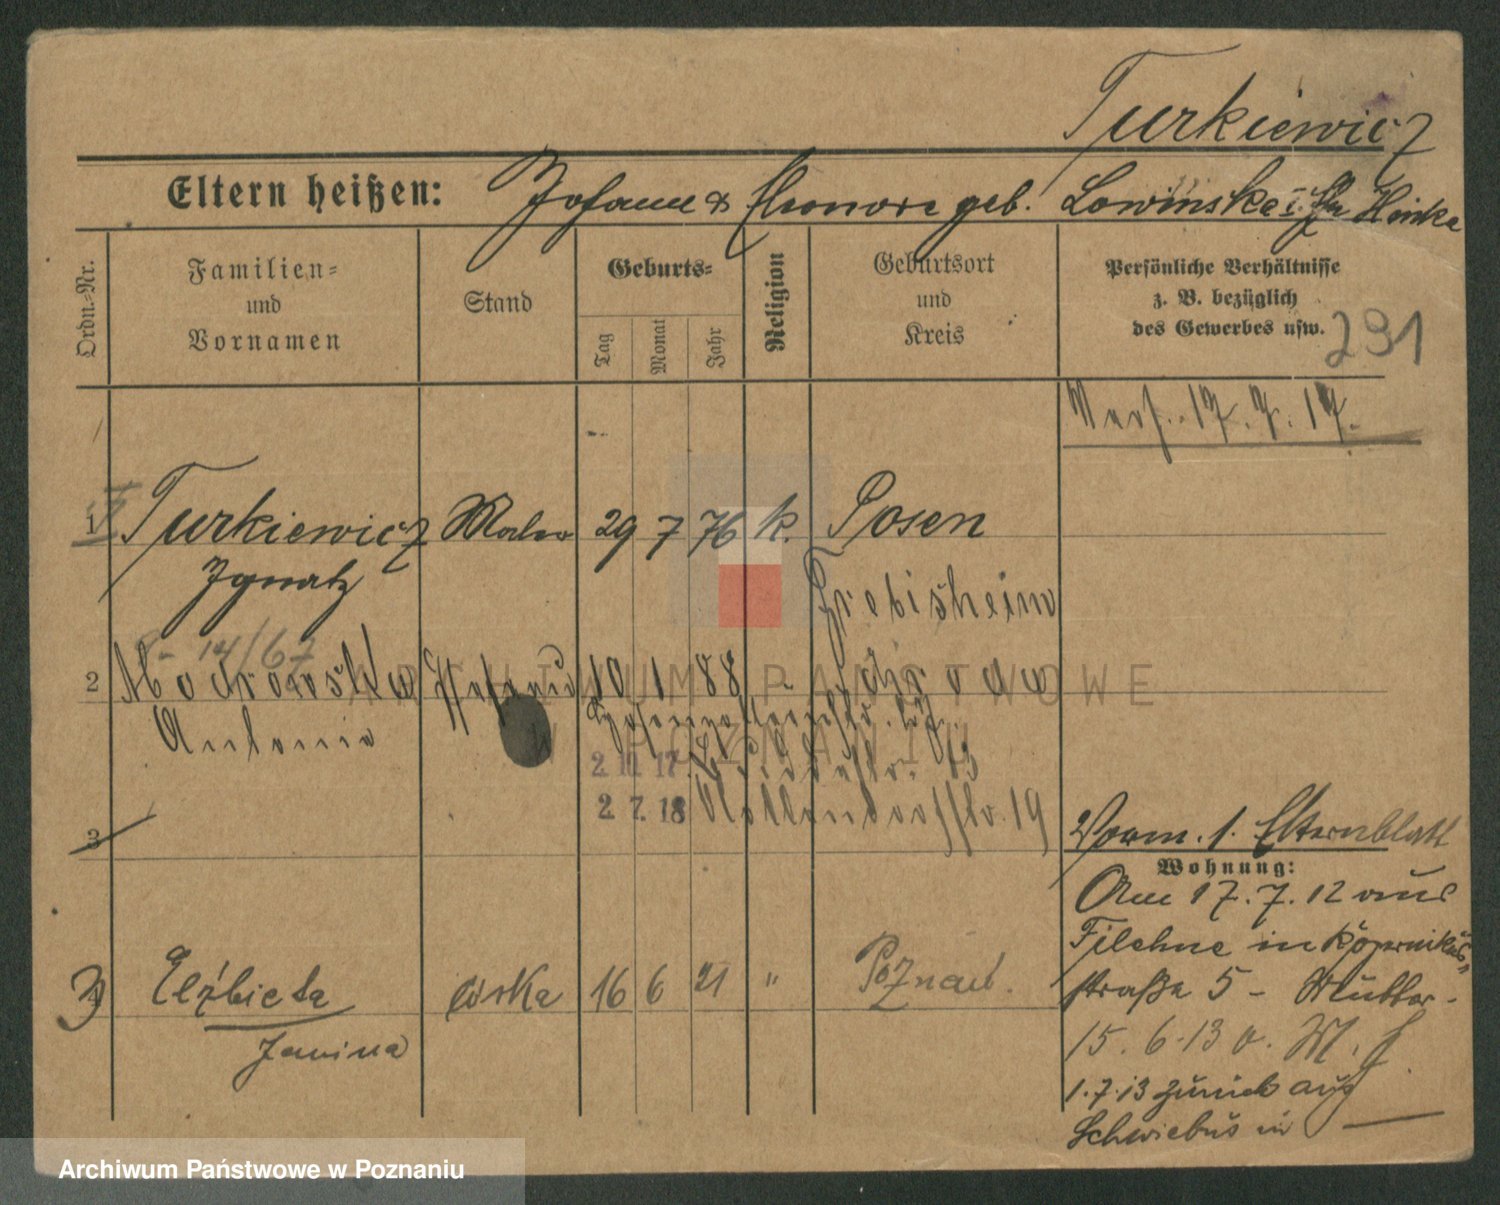 Turkiewicz
Eltern heißen: Johann & Eleonore geb. Lowinska
Ordn.-Nr.
Familien-
und
Vornamen
Stand
Geburts-
Tag
Monat
Jahr
Religion
Geburtsort
und
Kreis
Persönliche Verhältnisse
z. B. bezüglich
des Gewerbes usw.
291
17. 7. 17.
1 Turkiewicz Maler 29 7 76 k. Posen
Ignatz
14/67
2 10 1 88
Antonie
2. 11. 17
2. 7. 18 Nollendorfstr. 19
3
Vorm. 1. Elternblatt
Wohnung:
Am 17. 7. 12 aus
Filehne in Kopernikus-
straße 5 - Mutter -
3 Elżbieta córka 16 6 21 " Poznań.
Janina
15. 6. 13
1. 7. 13 zurück aus
Schwiebus in
ARCHIWUM PAŃSTWOWE
W POZNANIU
Archiwum Państwowe w Poznaniu